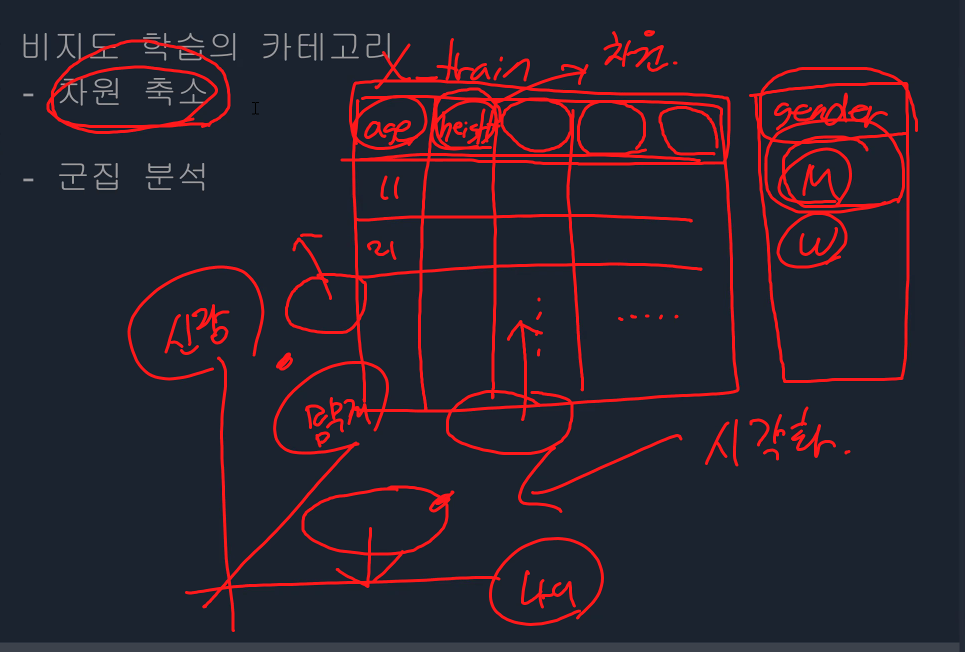 비지도 학습의 카테고리
- 차원 축소
- 군집 분석
X_train
차원.
age height
11
21
gender
M
W
신장
몸무게
시각화.
나이